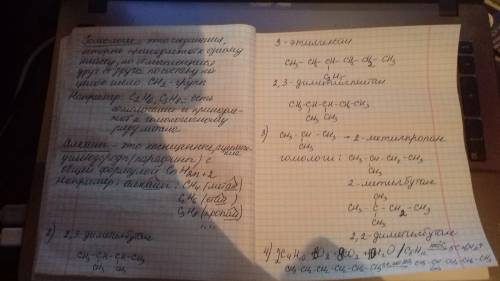 Гомологи - это соединения,
которые принадлежат к одному
классу, но отличающиеся
друг от друга по составу на
целое число CH₂ - групп.
Например: C₂H₆, C₃H₈ - есть
гомологами и принадле-
жат к гомологическому
ряду метана.
Алканы - это насыщенные
углеводороды (парафины) с
общей формулой CnH2n+2
Например: алканы: CH₄ (метан)
C₂H₆ (этан)
C₃H₈ (пропан)
....
2) 2,3-диметилбутан
CH₃-CH-CH-CH₃
CH₃ CH₃
3-этилгексан
CH₃-CH₂-CH-CH₂-CH₂-CH₃
C₂H₅
2,3-диметилпентан
CH₃-CH-CH-CH₂-CH₃
CH₃ CH₃
3) CH₃-CH-CH₃ - 2-метилпропан
CH₃
гомологи: CH₃-CH-CH₂-CH₃
CH₃
2-метилбутан
CH₃
CH₃-C-CH₂-CH₃
CH₃
2,2-диметилбутан
4)